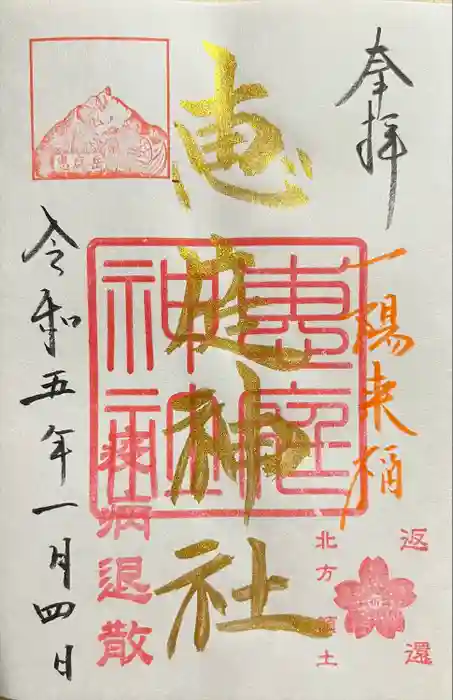 奉拝
一陽来福
恵庭神社
恵庭神社
令和五年一月四日
疫病退散
北方領土
返還
恵庭岳